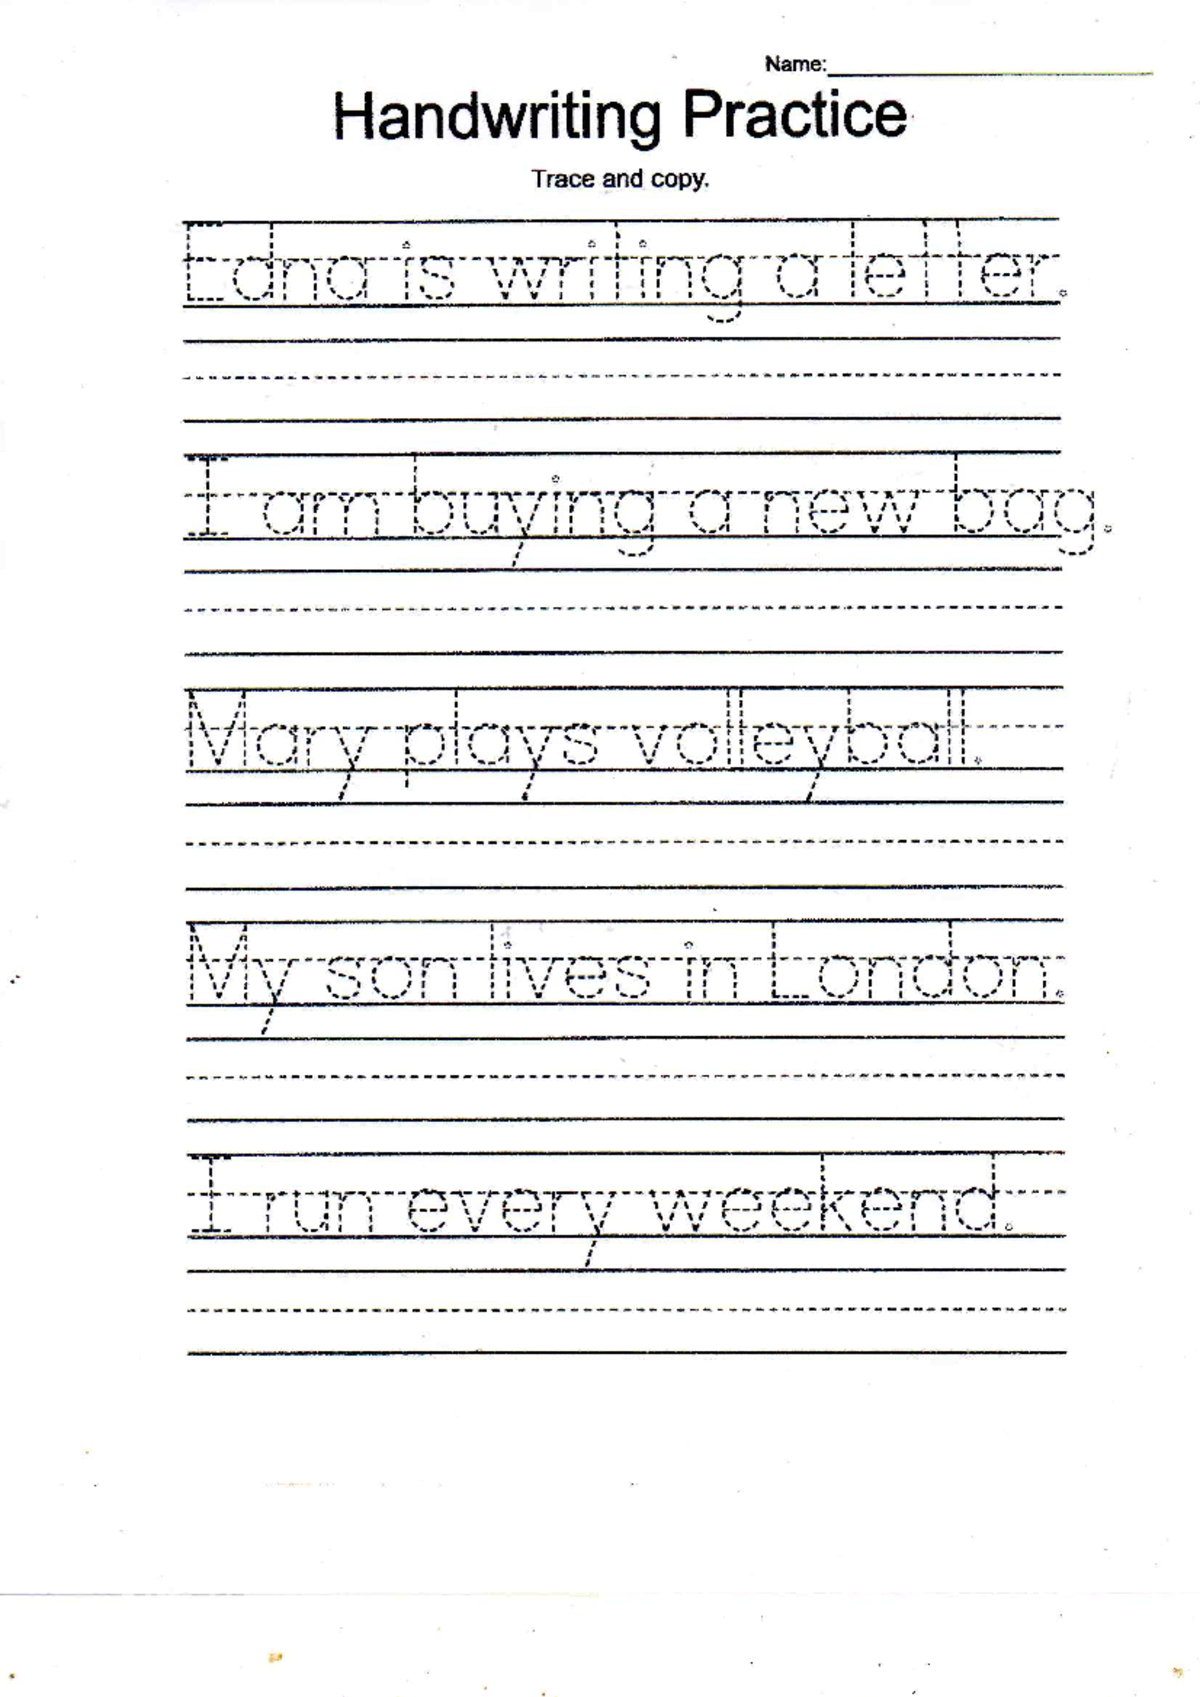 Name:
Handwriting Practice
Trace and copy.
Edna is writing a letter.
I am buying a new bag.
Mary plays volleyball.
My son lives in London.
I run every weekend.